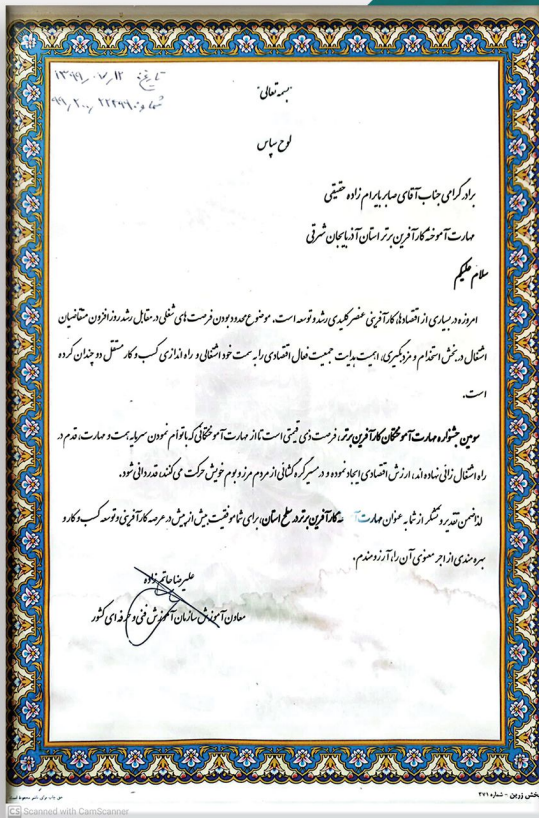 تاریخ: ۱۳۹۹/۰۷/۱۲
شماره: ۹۹/۲۰۰/۲۲۲۹۹
بسمه تعالی
لوح سپاس
برادر گرامی جناب آقای صابر بایرام زاده حقیقی
مهارت آموخته کارآفرین برتر استان آذربایجان شرقی
سلام علیکم
امروزه در بسیاری از اقتصادها، کارآفرینی عنصر کلیدی رشد و توسعه است. موضوع محدود بودن فرصت های شغلی در مقابل رشد روزافزون متقاضیان
اشتغال در بخش استخدام و مزدبگیری، اهمیت هدایت جمعیت فعال اقتصادی را به سمت خود اشتغالی و راه اندازی کسب و کار مستقل دو چندان کرده
است.
سومین جشنواره مهارت آموختگان کارآفرین برتر، فرصت ذی قیمتی است تا از مهارت آموختگانی که با توأم نمودن سرمایه همت و مهارت، قدم در
راه اشتغال زائی نهاده اند، ارزش اقتصادی ایجاد نموده و در مسیر گره گشائی از مردم مرز و بوم خویش حرکت می کنند، قدردانی شود.
لذا ضمن تقدیر و تشکر از شما به عنوان مهارت آ ته کارآفرین برتر در سطح استان، برای شما موفقیت بیش از پیش در عرصه کارآفرینی و توسعه کسب و کار و
بهره مندی از اجر معنوی آن را، آرزومندم.
علیرضا حاتم زاده
معاون آموزش سازمان آموزش فنی و حرفه ای کشور
بخش زرین - شماره ۴۷۱
حق چاپ برای ناشر محفوظ است
CS Scanned with CamScanner